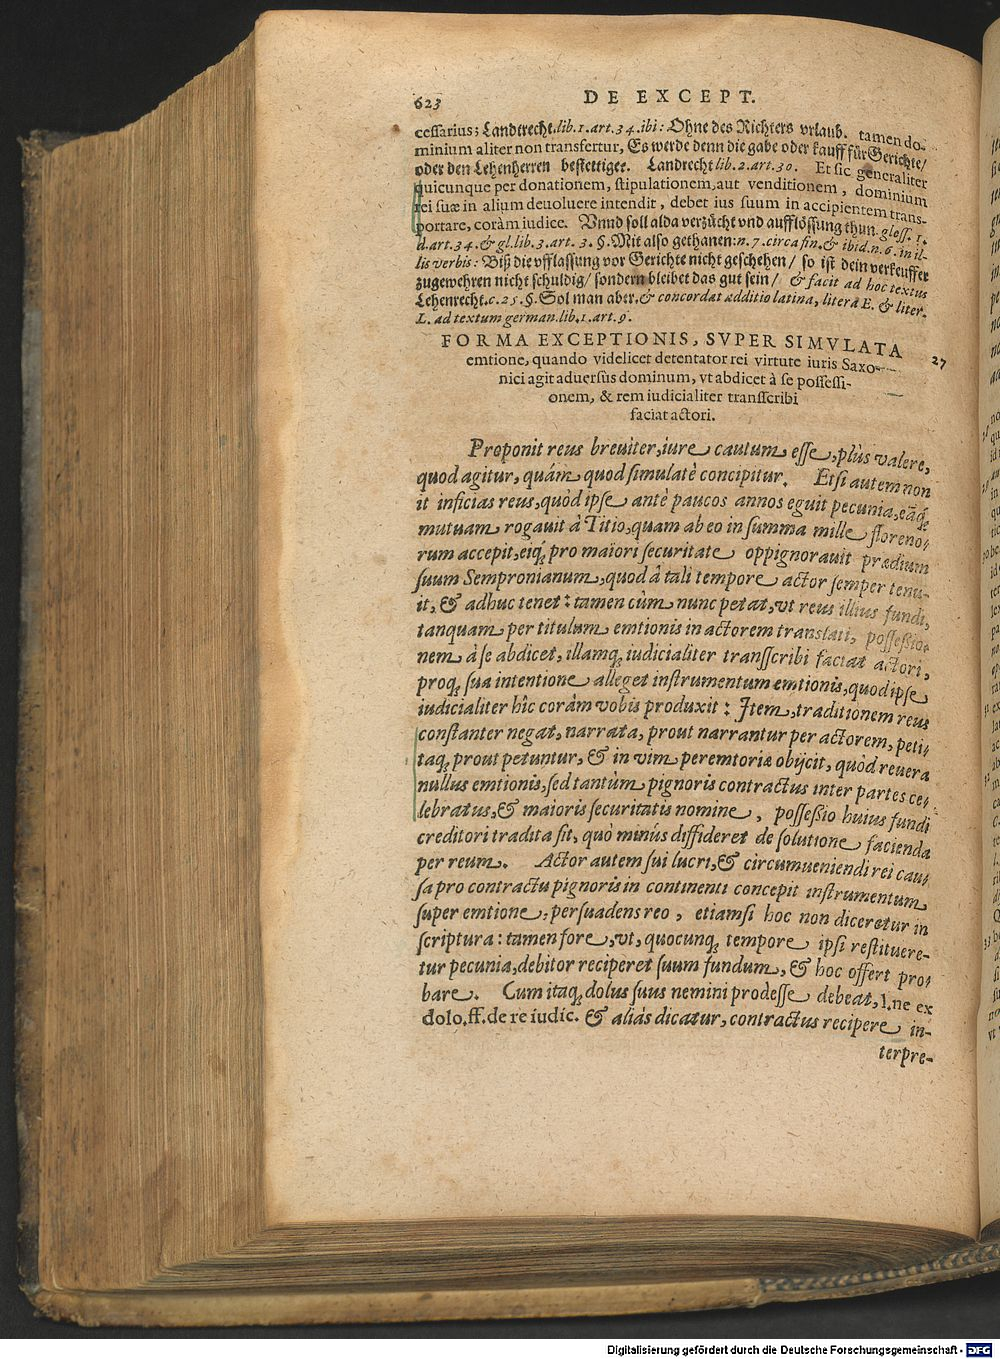 623 DE EXCEPT.
cessarius; Landtrecht. lib. 1. art. 34. ibi: Ohne des Richters vrlaub. tamen do-
minium aliter non transfertur, Es werde denn die gabe oder kauff für Gerichte/
oder den Lehenherren bestettiget. Landrecht lib. 2. art. 30. Et sic generaliter
quicunque per donationem, stipulationem, aut venditionem, dominium
rei suæ in alium deuoluere intendit, debet ius suum in accipientem trans-
portare, coràm iudice. Vnnd soll alda verzücht vnd aufflössung thun. gloss. 1.
d. art. 34. & gl. lib. 3. art. 3. §. Mit also gethanen: n. 7. circa fin. & ibid. n. 6. in il-
lis verbis: Biß die vfflassung vor Gerichte nicht geschehen/ so ist dein verkeuffer
zugewehren nicht schuldig/ sondern bleibet das gut sein/ & facit ad hoc textus
Lehenrecht. c. 25. §. Sol man aber. & concordat additio latina, litera E. & liter.
L. ad textum german. lib. 1. art. 9.
FORMA EXCEPTIONIS, SVPER SIMVLATA
emtione, quando videlicet detentator rei virtute iuris Saxo- 27
nici agit aduersùs dominum, vt abdicet à se possessi-
onem, & rem iudicialiter transscribi
faciat actori.
Proponit reus breuiter, iure cautum esse, plùs valere,
quod agitur, quám quod simulatè concipitur. Etsi autem non
it inficias reus, quòd ipse antè paucos annos eguit pecunia, eāq́;
mutuam rogauit à Titio, quam ab eo in summa mille floreno-
rum accepit, eiq́; pro maiori securitate oppignorauit prædium
suum Sempronianum, quod à tali tempore actor semper tenu-
it, & adhuc tenet: tamen cùm nunc petat, vt reus illius fundi,
tanquam per titulum emtionis in actorem translati, possessio-
nem à se abdicet, illamq; iudicialiter transscribi faciat actori,
proq; sua intentione alleget instrumentum emtionis, quod ipse
iudicialiter hîc coràm vobis produxit: Item, traditionem reus
constanter negat, narrata, prout narrantur per actorem, peti-
taq; prout petuntur, & in vim peremtoriæ obijcit, quòd reuera
nullus emtionis, sed tantùm pignoris contractus inter partes ce-
lebratus, & maioris securitatis nomine, possessio huius fundi
creditori tradita sit, quò minùs diffideret de solutione facienda
per reum. Actor autem sui lucri, & circumueniendi rei cau-
sa pro contractu pignoris in continenti concepit instrumentum
super emtione, persuadens reo, etiamsi hoc non diceretur in
scriptura: tamen fore, vt, quocunq; tempore ipsi restituere-
tur pecunia, debitor reciperet suum fundum, & hoc offert pro-
bare. Cum itaq; dolus suus nemini prodesse debeat, l. ne ex
dolo. ff. de re iudic. & aliàs dicatur, contractus recipere in-
terpre-
Digitalisierung gefördert durch die Deutsche Forschungsgemeinschaft - DFG